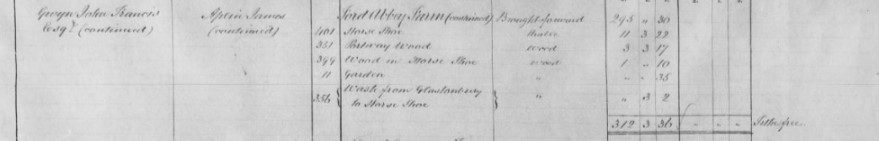 Gwyn John Francis Aplin James Ford Abbey Farm (continued) Brought forward 295 " 30
Esqr. (continued) (continued) 401 Horse Shoe 11 3 22
351 Wood Wood 3 3 17
399 Wood in Horse Shoe Wood 1 " 10
11 Garden " " " 35
356 Waste from Glastonbury to Horse Shoe " " 3 2
312 3 36 " " " Tithe free